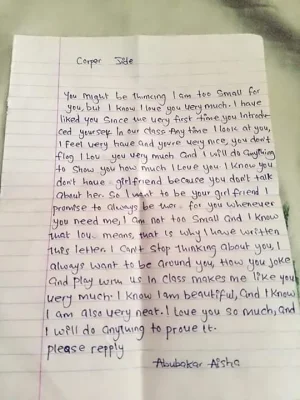 Corper Jide
You might be thinking I am too Small for
you, but I know I love you very much. I have
liked you Since the very first time you introdu-
ced yourself in our class Any time I look at you,
I feel very have and you're very nice, you don't
flog I Lov- you very much and I will do anything
to Show you how much I Love you I know you
don't have girlfriend because you don't talk
about her. So I want to be your girl friend I
promise to always be there for you whenever
you need me, I am not too Small and I know
that lov- means, that is why I have written
this letter. I can't stop thinking about you, I
always want to be around you, How you joke
And play with us in class makes me like you
very much. I know I am beautiful, and I know
I am also very neat. I love you so much, and
I will do anything to prove it.
please repply
Abubakar Aisha